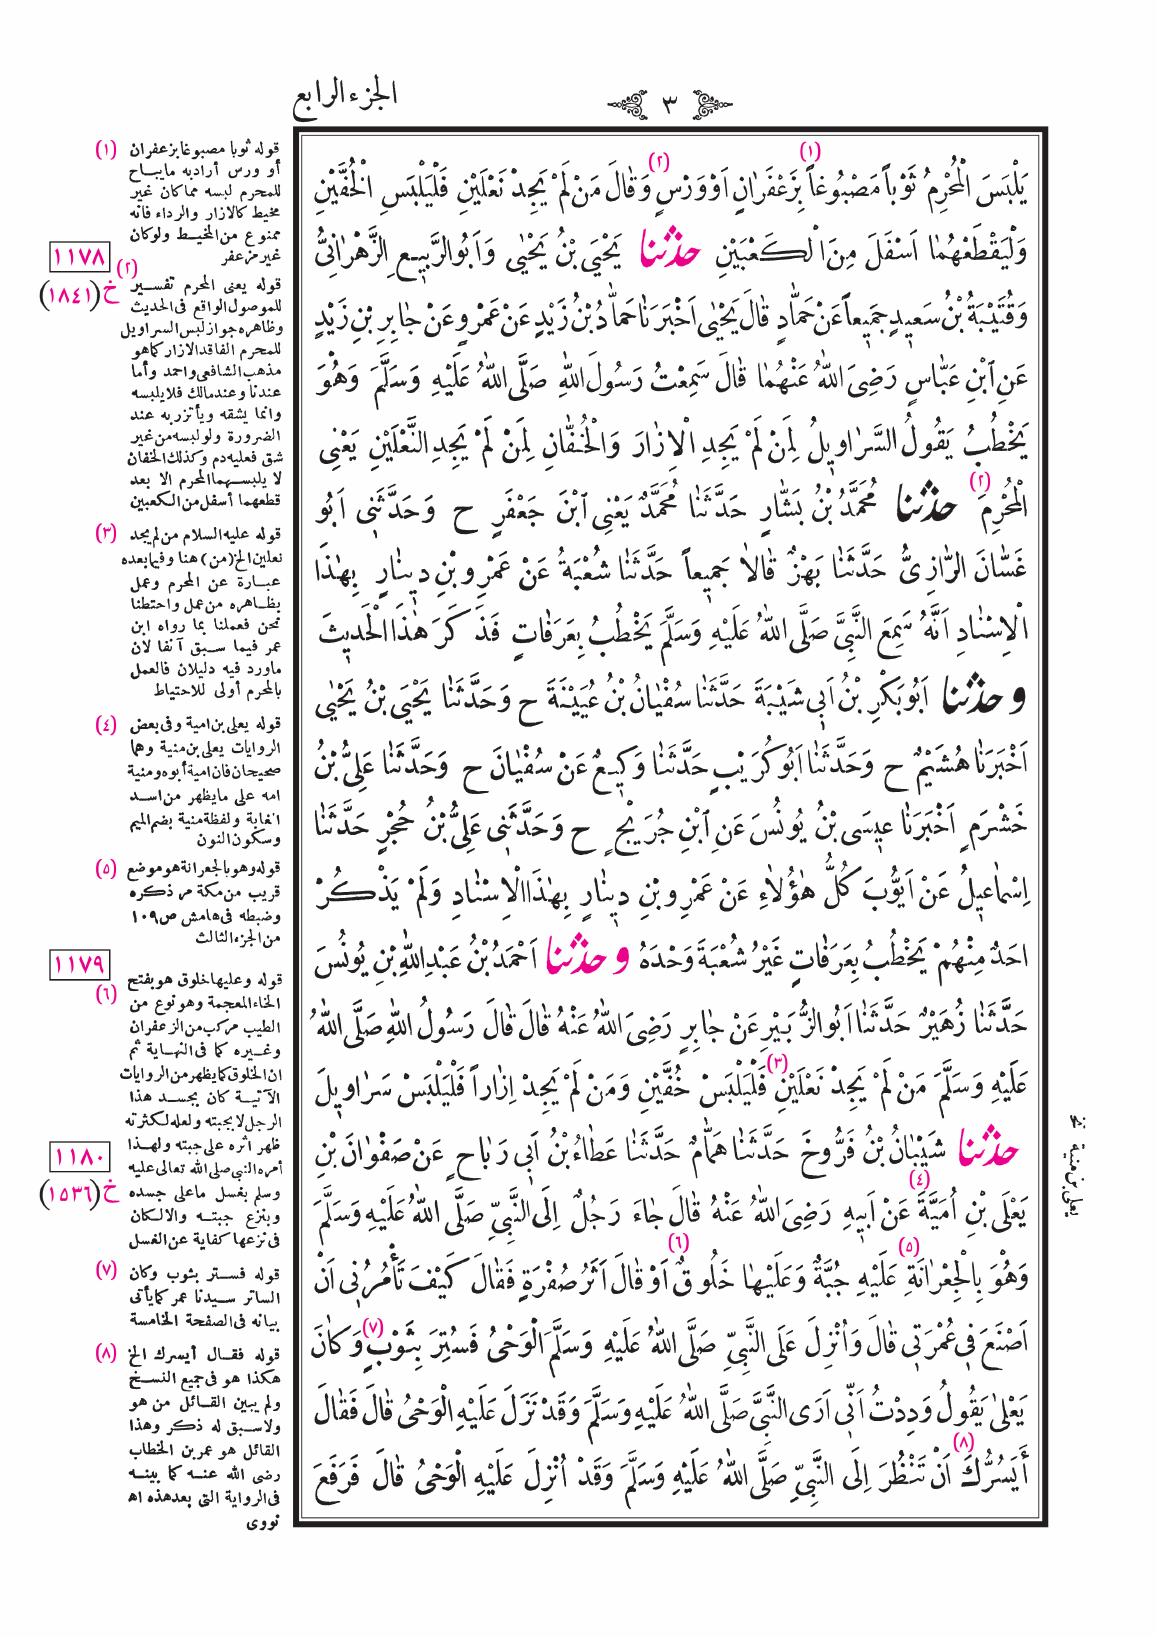 الجزء الرابع
٣
يَلْبَسَ الْمُحْرِمُ ثَوْباً مَصْبُوغاً (١) بِزَعْفَرَانٍ اَوْ وَرْسٍ (٢) وَقَالَ مَنْ لَمْ يَجِدْ نَعْلَيْنِ فَلْيَلْبَسِ الْخُفَّيْنِ
وَلْيَقْطَعْهُمَا اَسْفَلَ مِنَ الْكَعْبَيْنِ حدثنا يَحْيَى بْنُ يَحْيٰى وَاَبُوالرَّبِيعِ الزَّهْرَانِىُّ
وَقُتَيْبَةُ بْنُ سَعِيدٍ جَمِيعاً عَنْ حَمَّادٍ قَالَ يَحْيٰى اَخْبَرَنَا حَمَّادُ بْنُ زَيْدٍ عَنْ عَمْرٍو عَنْ جَابِرِ بْنِ زَيْدٍ
عَنِ ابْنِ عَبَّاسٍ رَضِىَ اللّٰهُ عَنْهُمَا قَالَ سَمِعْتُ رَسُولَ اللّٰهِ صَلَّى اللّٰهُ عَلَيْهِ وَسَلَّمَ وَهُوَ
يَخْطُبُ يَقُولُ السَّرَاوِيلُ لِمَنْ لَمْ يَجِدِ الْاِزَارَ وَالْخُفَّانِ لِمَنْ لَمْ يَجِدِ النَّعْلَيْنِ يَعْنِى
الْمُحْرِمَ (٢) حدثنا مُحَمَّدُ بْنُ بَشَّارٍ حَدَّثَنَا مُحَمَّدٌ يَعْنِى ابْنَ جَعْفَرٍ ح وَحَدَّثَنِى اَبُو
غَسَّانَ الرَّازِىُّ حَدَّثَنَا بَهْزٌ قَالَا جَمِيعاً حَدَّثَنَا شُعْبَةُ عَنْ عَمْرِو بْنِ دِينَارٍ بِهٰذَا
الْاِسْنَادِ اَنَّهُ سَمِعَ النَّبِىَّ صَلَّى اللّٰهُ عَلَيْهِ وَسَلَّمَ يَخْطُبُ بِعَرَفَاتٍ فَذَكَرَ هٰذَا الْحَدِيثَ
و حدثنا اَبُوبَكْرِ بْنُ اَبِى شَيْبَةَ حَدَّثَنَا سُفْيَانُ بْنُ عُيَيْنَةَ ح وَحَدَّثَنَا يَحْيَى بْنُ يَحْيٰى
اَخْبَرَنَا هُشَيْمٌ ح وَحَدَّثَنَا اَبُوكُرَيْبٍ حَدَّثَنَا وَكِيعٌ عَنْ سُفْيَانَ ح وَحَدَّثَنَا عَلِىُّ بْنُ
خَشْرَمٍ اَخْبَرَنَا عِيسَى بْنُ يُونُسَ عَنِ ابْنِ جُرَيْجٍ ح وَحَدَّثَنِى عَلِىُّ بْنُ حُجْرٍ حَدَّثَنَا
اِسْمَاعِيلُ عَنْ اَيُّوبَ كُلُّ هٰؤُلَاءِ عَنْ عَمْرِو بْنِ دِينَارٍ بِهٰذَا الْاِسْنَادِ وَلَمْ يَذْكُرْ
اَحَدٌ مِنْهُمْ يَخْطُبُ بِعَرَفَاتٍ غَيْرُ شُعْبَةَ وَحْدَهُ و حدثنا اَحْمَدُ بْنُ عَبْدِ اللّٰهِ بْنِ يُونُسَ
حَدَّثَنَا زُهَيْرٌ حَدَّثَنَا اَبُوالزُّبَيْرِ عَنْ جَابِرٍ رَضِىَ اللّٰهُ عَنْهُ قَالَ قَالَ رَسُولُ اللّٰهِ صَلَّى اللّٰهُ
عَلَيْهِ وَسَلَّمَ مَنْ لَمْ يَجِدْ نَعْلَيْنِ (٣) فَلْيَلْبَسْ خُفَّيْنِ وَمَنْ لَمْ يَجِدْ اِزَاراً فَلْيَلْبَسْ سَرَاوِيلَ
حدثنا شَيْبَانُ بْنُ فَرُّوخَ حَدَّثَنَا هَمَّامٌ حَدَّثَنَا عَطَاءُ بْنُ اَبِى رَبَاحٍ عَنْ صَفْوَانَ بْنِ
يَعْلَى بْنِ اُمَيَّةَ (٤) عَنْ اَبِيهِ رَضِىَ اللّٰهُ عَنْهُ قَالَ جَاءَ رَجُلٌ اِلَى النَّبِىِّ صَلَّى اللّٰهُ عَلَيْهِ وَسَلَّمَ
وَهُوَ بِالْجِعْرَانَةِ (٥) عَلَيْهِ جُبَّةٌ وَعَلَيْهَا خَلُوقٌ (٦) اَوْ قَالَ اَثَرُ صُفْرَةٍ فَقَالَ كَيْفَ تَأْمُرُنِى اَنْ
اَصْنَعَ فِى عُمْرَتِى قَالَ وَاُنْزِلَ عَلَى النَّبِىِّ صَلَّى اللّٰهُ عَلَيْهِ وَسَلَّمَ الْوَحْىُ فَسُتِرَ بِثَوْبٍ (٧) وَكَانَ
يَعْلٰى يَقُولُ وَدِدْتُ اَنِّى اَرَى النَّبِىَّ صَلَّى اللّٰهُ عَلَيْهِ وَسَلَّمَ وَقَدْ نَزَلَ عَلَيْهِ الْوَحْىُ قَالَ فَقَالَ
أَيَسُرُّكَ (٨) اَنْ تَنْظُرَ اِلَى النَّبِىِّ صَلَّى اللّٰهُ عَلَيْهِ وَسَلَّمَ وَقَدْ اُنْزِلَ عَلَيْهِ الْوَحْىُ قَالَ فَرَفَعَ
(١) قوله ثوبا مصبوغا بزعفران
أو ورس أراد به ما يباح
للمحرم لبسه مما كان غير
مخيط كالازار والرداء فانه
ممنوع من المخيط ولو كان
غير مزعفر
١١٧٨
خ (١٨٤١)
(٢) قوله يعنى المحرم تفسير
للموصول الواقع فى الحديث
وظاهره جواز لبس السراويل
للمحرم الفاقد الازار كما هو
مذهب الشافعى واحمد وأما
عندنا وعند مالك فلا يلبسه
وانما يشقه ويأتزر به عند
الضرورة ولو لبسه من غير
شق فعليه دم وكذلك الخفان
لا يلبسهما المحرم الا بعد
قطعهما أسفل من الكعبين
(٣) قوله عليه السلام من لم يجد
نعلين الخ (من) هنا وفيما بعده
عبارة عن المحرم وعمل
بظاهره من عمل واحتطنا
نحن فعملنا بما رواه ابن
عمر فيما سبق آنفا لان
ماورد فيه دليلان فالعمل
بالمحرم أولى للاحتياط
(٤) قوله يعلى بن امية وفى بعض
الروايات يعلى بن منية وهما
صحيحان فان امية أبوه ومنية
امه على مايظهر من اسد
الغابة ولفظة منية بضم الميم
وسكون النون
(٥) قوله وهو بالجعرانة هو موضع
قريب من مكة مر ذكره
وضبطه فى هامش ص ١٠٩
من الجزء الثالث
١١٧٩
(٦) قوله وعليها خلوق هو بفتح
الخاء المعجمة وهو نوع من
الطيب مركب من الزعفران
وغيره كما فى النهاية ثم
ان الخلوق كما يظهر من الروايات
الآتية كان بجسد هذا
الرجل لا بجبته ولعله لكثرته
ظهر اثره على جبته ولهذا
أمره النبى صلى الله تعالى عليه
وسلم بغسل ماعلى جسده
وبنزع جبته والا لكان
فى نزعها كفاية عن الغسل
١١٨٠
خ (١٥٣٦)
(٧) قوله فستر بثوب وكان
الساتر سيدنا عمر كما يأتى
بيانه فى الصفحة الخامسة
(٨) قوله فقال أيسرك الخ
هكذا هو فى جميع النسخ
ولم يبين القائل من هو
ولا سبق له ذكر وهذا
القائل هو عمر بن الخطاب
رضى الله عنه كما بينه
فى الرواية التى بعد هذه اه
نووى
يعلى بن منية نخ